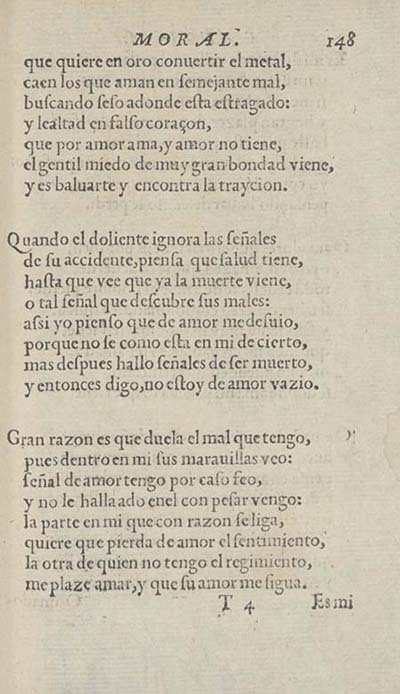 MORAL. 148
que quiere en oro conuertir el metal,
caen los que aman en ſemejante mal,
buſcando ſeſo adonde eſta eſtragado:
y lealtad en falſo coraçon,
que por amor ama, y amor no tiene,
el gentil miedo de muy gran bondad viene,
y es baluarte y encontra la traycion.
Quando el doliente ignora las ſeñales
de ſu accidente, pienſa que ſalud tiene,
haſta que vee que ya la muerte viene,
o tal ſeñal que deſcubre ſus males:
aſsi yo pienſo que de amor me deſuio,
porque no ſe como eſta en mi de cierto,
mas deſpues hallo ſeñales de ſer muerto,
y entonces digo, no eſtoy de amor vazio.
Gran razon es que duela el mal que tengo,
pues dentro en mi ſus marauillas veo:
ſeñal de amor tengo por caſo feo,
y no le halla ado en el con peſar vengo:
la parte en mi que con razon ſe liga,
quiere que pierda de amor el ſentimiento,
la otra de quien no tengo el regimiento,
me plaze amar, y que ſu amor me ſigua.
T 4 Es mi